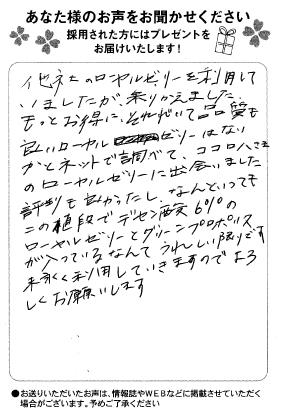 あなた様のお声をお聞かせください
採用された方にはプレゼントを
お届けいたします！
他社のローヤルゼリーを利用して
いましたが、乗りかえました。
もっとお得に、それでいて品質も
良いローヤルゼリーはない
かとネットで調べて、ココロハさま
のローヤルゼリーに出会いました
評判も良かったし、なんといっても
この値段でデセン酸6%の
ローヤルゼリーとグリーンプロポリス
が入っているなんてうれしい限りです
末永く利用していきますのでよろ
しくお願いします
●お送りいただいたお声は、情報誌やWEBなどに掲載させていただく
場合がございます。予めご了承ください